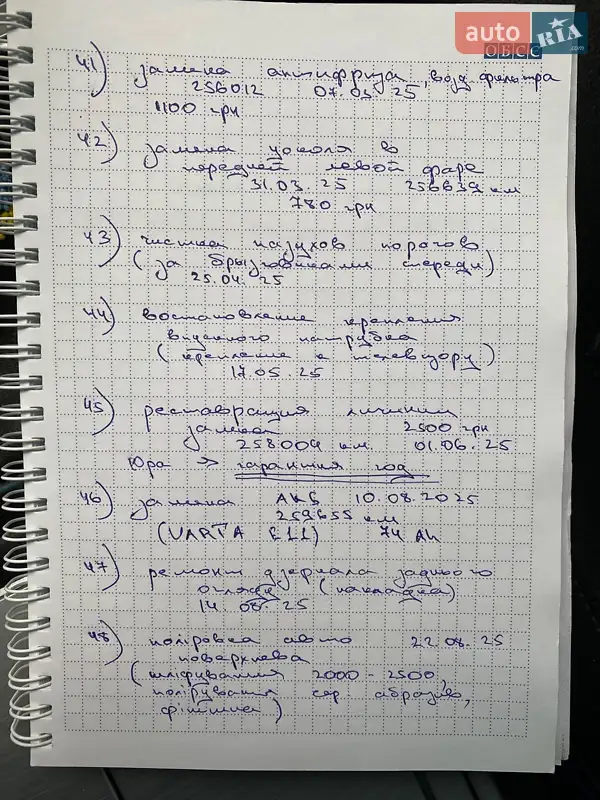 auto RIA .com
ОБСС
41) замена антифриза, возд. фильтра
256012 07.03.25
1100 грн
42) замена цоколя в
передней левой фаре
31.03.25 256639 км
780 грн
43) чистка пазухов порогов
(за брызговиками спереди)
25.04.25
44) востановление крепления
впускного патрубка
(крепление к телевизору)
17.05.25
45) реставрация личинки
замка 2500 грн
258009 км. 01.06.25
Юра → гарантия год
46) замена АКБ 10.08.2025
259655 км
(VARTA E11) 74 Ah
47) ремонт дзеркала заднього
огляду (накладка)
14.08.25
48) поліровка авто 22.08.25
поверхнева
(шліфування 2000-2500,
полірування сер абразив,
фінішка)